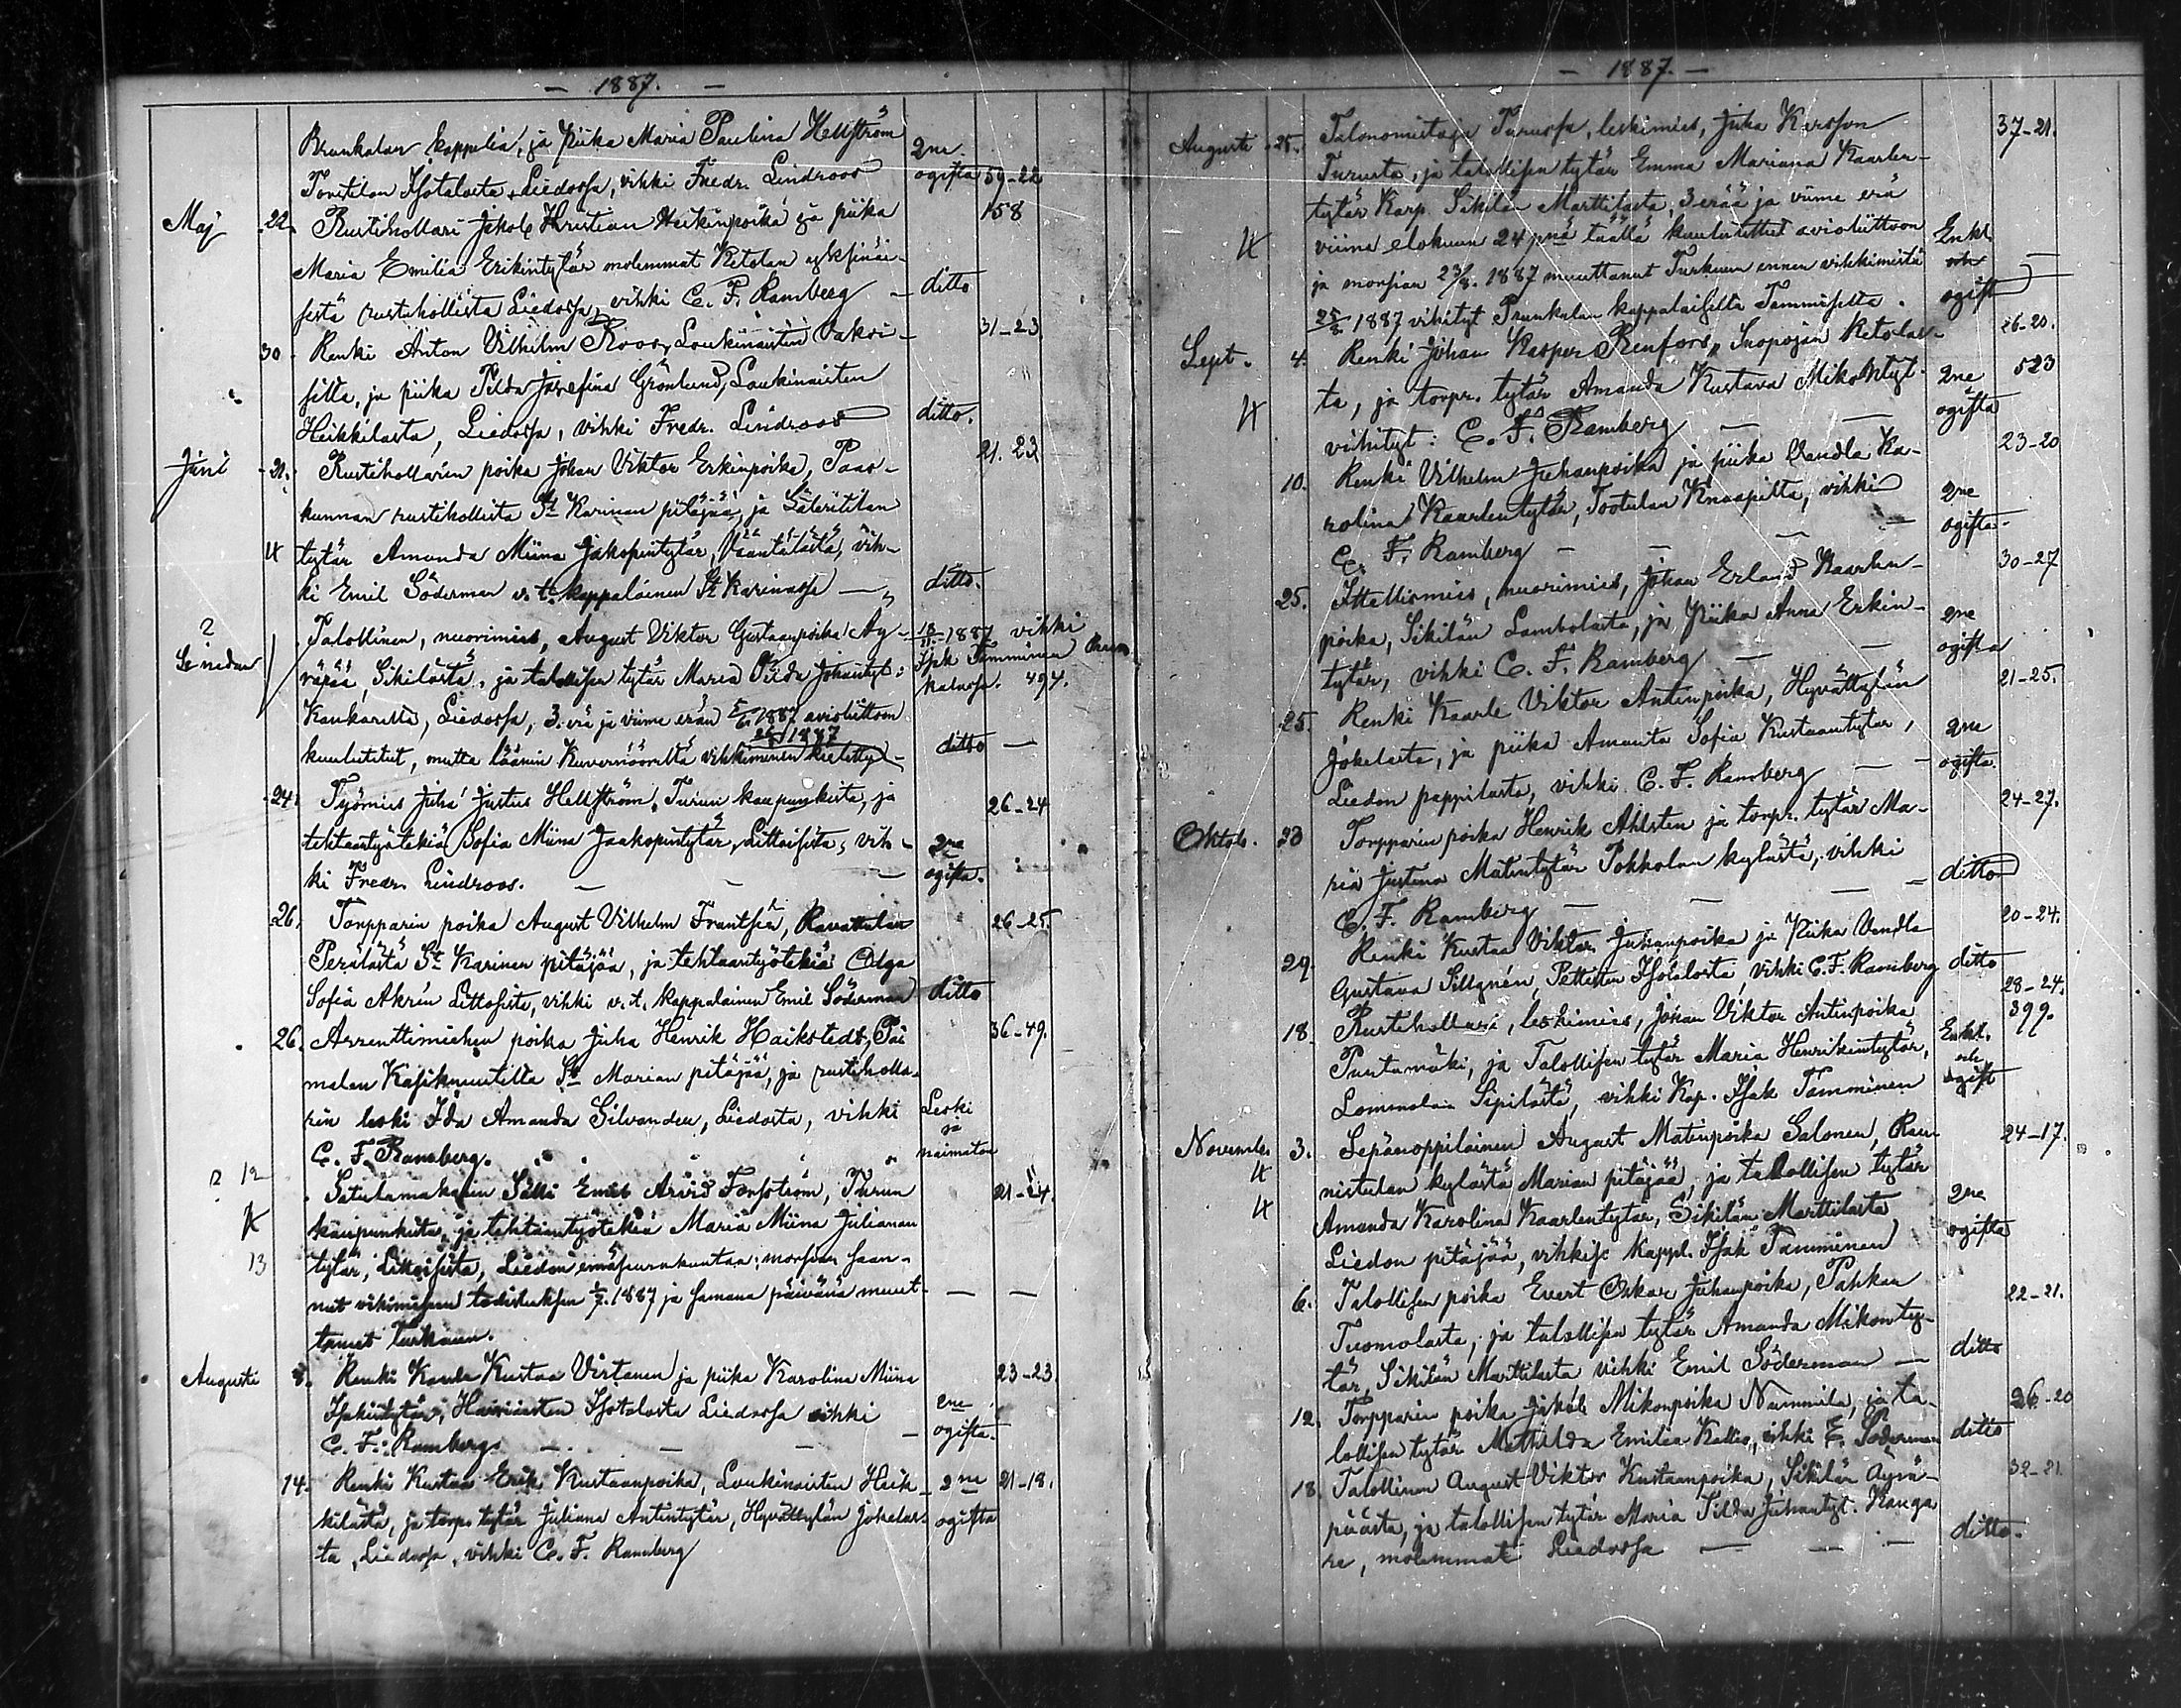 - 1887. -
Brunkalan kappelia, ja Piika Maria Paulina Hellström 2ne
Tonttilan Isotalosta, Liedossa, vihki Fredr. Lindroos ogifta 59-22
Maj 22. Rustihollari Jakob Kristian Heikinpoika ja piika 158
Maria Emilia Erikintytär molemmat Ketolan yksinäi-
sestä rustihollista Liedossa, vihki C. F. Ramberg - ditto
30. Renki Anton Vilhelm Roos, Loukinaisten Vakoi- 31-23.
silta, ja piika Tilda Josefina Grönlund, Loukinaisten
Heikkilasta, Liedossa, vihki Fredr. Lindroos ditto.
Juni 21. Rustihollarin poika Johan Viktor Erkinpoika, Paas- 21. 23
kunnan rustihollista St Karinan pitäjää, ja Säteritilan
4 tytär Amanda Miina Jakopintytär, Vääntälästä, vih-
ki Emil Söderman v. t. kappalainen St Karinassa - ditto.
2 Talollinen, nuorimies, August Viktor Gustaanpoika Äy- 18/11 1887 vihki
Sinedan räpää, Sikilästä, ja talollisen tytär Maria Tilda Johantyt: Isak Tamminen
Kankareelta, Liedossa, 3. erä ja viime erän 1887 avioliittoon kalossa. 494.
26/6 1887
kuulutetut, mutta läänin Kuvernööriltä vihkiminen kielletty - ditto -
24. Työmies Juha Justus Hellström, Turun kaupunkista, ja 26-24
tehtaantyötekiä Sofia Miina Jaakopintytär, Littoisista, vih- 2ne
ki Fredr. Lindroos. - - - ogifta.
26. Torpparin poika August Vilhelm Frantsén, Ravattulan 26-25.
Perälästä St Karinan pitäjää, ja tehtaantyötekiä Olga
Sofia Akrén Littoista, vihki v. t. kappalainen Emil Söderman ditto
26. Arrenttimiehen poika Juha Henrik Haikstedt, Täi 36-49.
malan Käsikmuntilta St Marian pitäjää, ja rustiholla-
rin leski Ida Amanda Silvander, Liedosta, vihki Leski
ja
C. F. Ramberg. naimaton
2 12 Satulamakarin Sälli Emil Arvid Forsström, Turun 21-24.
4 kaupunkista, ja tehtaantyötekiä Maria Miina Julianan
13 tytär, Littoisista, Liedon emäseurakuntaa; morsian saan-
nut vihimisen todistuksen 1/7. 1887 ja samana päivänä muut- - -
tanut Turkuun.
Augusti 8. Renki Kaarle Kustaa Virtanen ja piika Karolina Miina 23-23.
Isakintytär, Isotalosta Liedossa vihki 2ne
C. F. Ramberg. - - - ogifta.
14. Renki Kustaa Erik Kustaanpoika, Loukinaisten Heik- 2ne 21-18.
kilästä, ja torp. tytär Juliana Antintytär, Hyvättylän Jokelas- ogifta
ta, Liedossa, vihki C. F. Ramberg
- 1887. -
Augusti 25. Talonomistaja Turussa, leskimies, Juha Karsson 37-21.
Turusta, ja talollisen tytär Emma Mariana Kaarlen-
tytär Karp. Sikilän Marttilasta, 3 erää ja viime erä
4 viime elokuun 24 pnä täällä kuulutettut avioliittoon Enkl.
ja morsian 23/8. 1887 muuttanut Turkuun ennen vihkimistä och -
25/8 1887 vihityt Prunkalan kappalaiselta Tammiselta. ogift
Sept. 4. Renki Johan Kasper Renfors, Inopojan Ketolas- 26-20.
4 ta, ja torpr. tytär Amanda Kustava Mikontyt. 2ne 523
vihityt: C. F. Ramberg - - ogifta
10. Renki Vilhelm Juhanpoika ja piika Vendla Ka- 23-20
rolina Kaarlentytär, Tootulan Knaapilta, vihki 2ne
C. F. Ramberg - - - ogifta.
25. Ittellismies, nuorimies, Johan Erland Kaarlen- 30-27
poika, Sikilän Lambolasta, ja Piika Anna Erkin- 2ne
tytär, vihki C. F. Ramberg - - ogifta
25. Renki Kaarle Viktor Antinpoika, Hyvättylän 21-25.
Jokelasta, ja piika Amanta Sofia Kustaantytär, 2ne
Liedon pappilasta, vihki C. F. Ramberg - - ogifta.
Oktob. 23 Torpparin poika Henrik Ahlsten ja torpr. tytär Ma- 24-27.
ria Justina Matintytär Pohkolan kylästä, vihki
C. F. Ramberg - - - ditto
29. Renki Kustaa Viktor Juhanpoika ja Piika Vendla 20-24.
Gustava Sillgrén, Pettisten Isotalosta, vihki C. F. Ramberg ditto
18. Rustihollari, leskimies, Johan Viktor Antinpoika 28-24.
399.
Puntamäki, ja Talollisen tytär Maria Henrikintytär, Enkl.
och
Lammalan Sipilästä, vihki Kap. Isak Tamminen ogift
November 3. Sepänoppilainen August Matinpoika Salonen, Rau- 24-17.
4 nistulan kylästä Marian pitäjää, ja talollisen tytär
4 Amanda Karolina Kaarlentytär, Sikilän Marttilasta 2ne
Liedon pitäjää, vihki kappl. Isak Tamminen ogifta
6. Talollisen poika Evert Oskar Juhanpoika, Pahkan 22-21.
Tuomolasta, ja talollisen tytär Amanda Mikonty-
tär, Sikilän Marttilasta vihki Emil Söderman - ditto
12. Torpparin poika Jakob Mikonpoika Nummila, ja ta- 26-20
lollisen tytär Mathilda Emilia Kallio, vihki E. Söderman ditto
18. Talollinen August Viktor Kustaanpoika, Sikilän Äyrä- 32-21.
päästä, ja talollisen tytär Maria Tilda Juhantyt. Kanga
re, molemmat Liedossa - - - ditto.